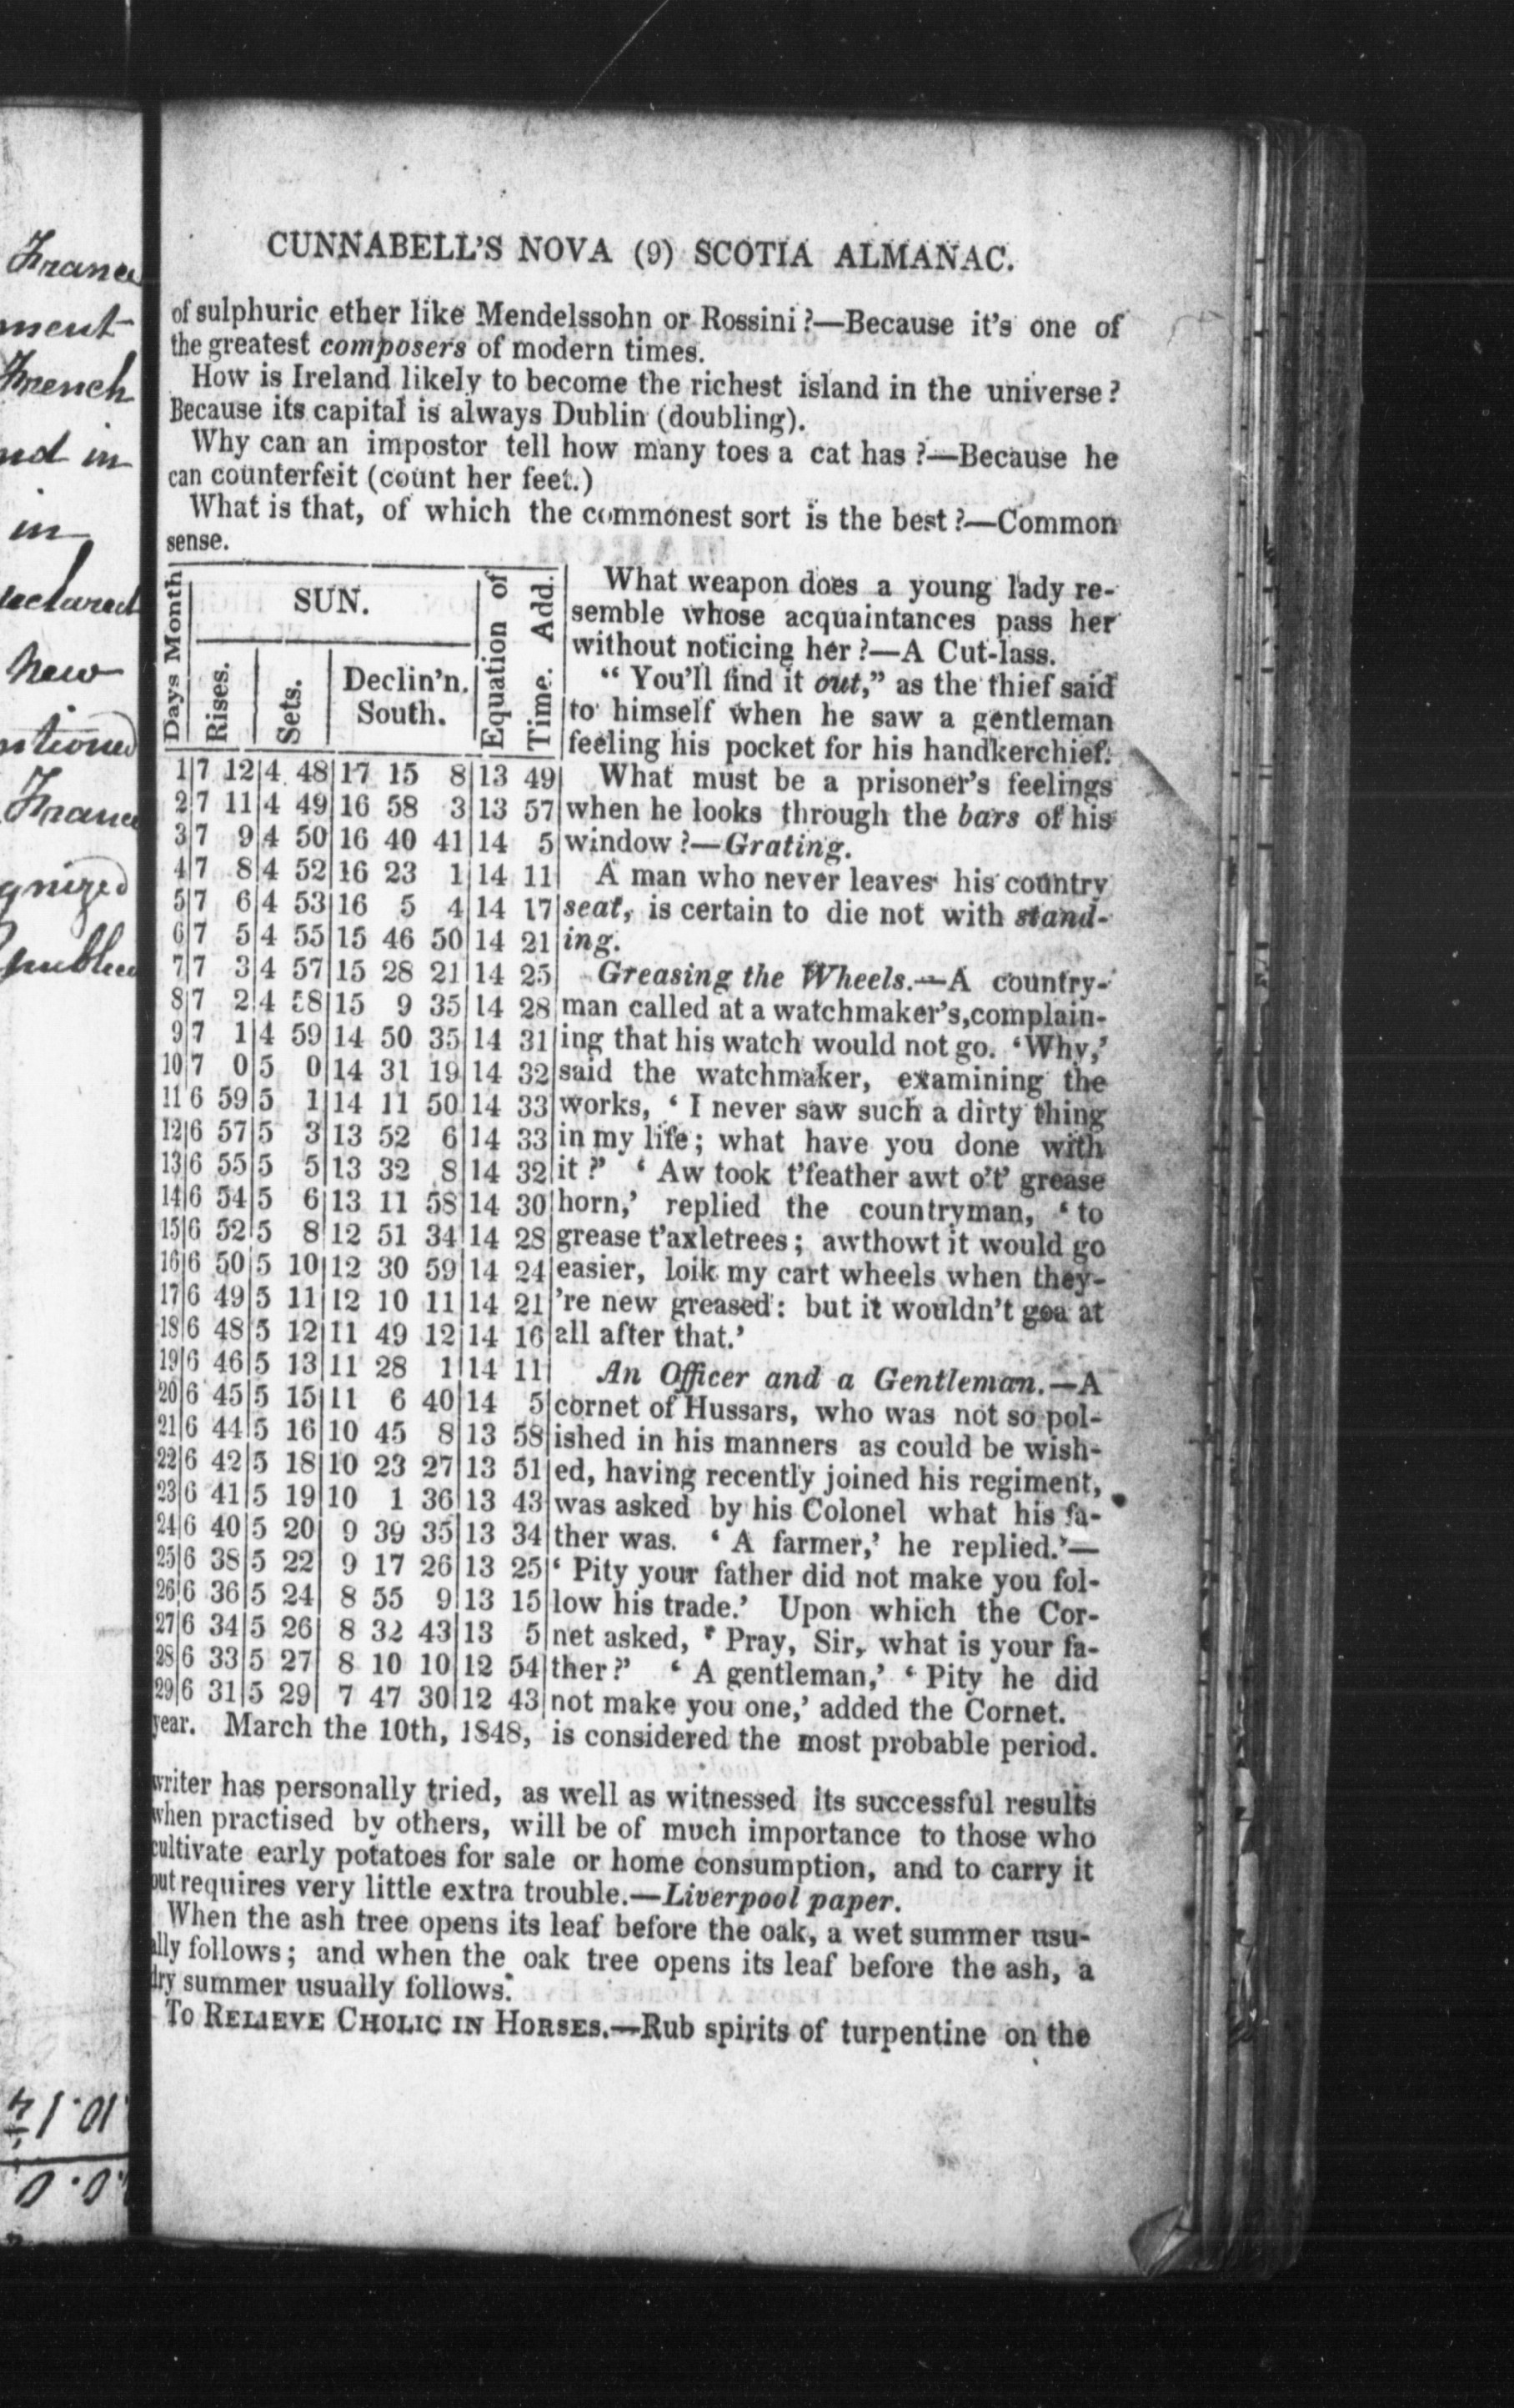 France
ment
French
nd in
in
declared
new
ntioned
France
gnized
CUNNABELL'S NOVA (9) SCOTIA ALMANAC.
of sulphuric ether like Mendelssohn or Rossini?—Because it's one of
the greatest composers of modern times.
How is Ireland likely to become the richest island in the universe?
Because its capital is always Dublin (doubling).
Why can an impostor tell how many toes a cat has?—Because he
can counterfeit (count her feet.)
What is that, of which the commonest sort is the best?—Common
sense.
Days Month
SUN.
Rises.
Sets.
Declin'n.
South.
Equation of
Time. Add.
1 7 12 4 48 17 15 8 13 49
2 7 11 4 49 16 58 3 13 57
3 7 9 4 50 16 40 41 14 5
4 7 8 4 52 16 23 1 14 11
5 7 6 4 53 16 5 4 14 17
6 7 5 4 55 15 46 50 14 21
7 7 3 4 57 15 28 21 14 25
8 7 2 4 58 15 9 35 14 28
9 7 1 4 59 14 50 35 14 31
10 7 0 5 0 14 31 19 14 32
11 6 59 5 1 14 11 50 14 33
12 6 57 5 3 13 52 6 14 33
13 6 55 5 5 13 32 8 14 32
14 6 54 5 6 13 11 58 14 30
15 6 52 5 8 12 51 34 14 28
16 6 50 5 10 12 30 59 14 24
17 6 49 5 11 12 10 11 14 21
18 6 48 5 12 11 49 12 14 16
19 6 46 5 13 11 28 1 14 11
20 6 45 5 15 11 6 40 14 5
21 6 44 5 16 10 45 8 13 58
22 6 42 5 18 10 23 27 13 51
23 6 41 5 19 10 1 36 13 43
24 6 40 5 20 9 39 35 13 34
25 6 38 5 22 9 17 26 13 25
26 6 36 5 24 8 55 9 13 15
27 6 34 5 26 8 32 43 13 5
28 6 33 5 27 8 10 10 12 54
29 6 31 5 29 7 47 30 12 43
What weapon does a young lady re-
semble whose acquaintances pass her
without noticing her?—A Cut-lass.
"You'll find it out," as the thief said
to himself when he saw a gentleman
feeling his pocket for his handkerchief.
What must be a prisoner's feelings
when he looks through the bars of his
window?—Grating.
A man who never leaves his country
seat, is certain to die not with stand-
ing.
Greasing the Wheels.—A country-
man called at a watchmaker's, complain-
ing that his watch would not go. 'Why,'
said the watchmaker, examining the
works, 'I never saw such a dirty thing
in my life; what have you done with
it?' 'Aw took t'feather awt o't' grease
horn,' replied the countryman, 'to
grease t'axletrees; awthowt it would go
easier, loik my cart wheels when they-
're new greased: but it wouldn't goa at
all after that.'
An Officer and a Gentleman.—A
cornet of Hussars, who was not so pol-
ished in his manners as could be wish-
ed, having recently joined his regiment,
was asked by his Colonel what his fa-
ther was. 'A farmer,' he replied.'—
'Pity your father did not make you fol-
low his trade.' Upon which the Cor-
net asked, 'Pray, Sir, what is your fa-
ther?' 'A gentleman,' 'Pity he did
not make you one,' added the Cornet.
year. March the 10th, 1848, is considered the most probable period.
writer has personally tried, as well as witnessed its successful results
when practised by others, will be of much importance to those who
cultivate early potatoes for sale or home consumption, and to carry it
out requires very little extra trouble.—Liverpool paper.
When the ash tree opens its leaf before the oak, a wet summer usu-
ally follows; and when the oak tree opens its leaf before the ash, a
dry summer usually follows.
To RELIEVE CHOLIC IN HORSES.—Rub spirits of turpentine on the